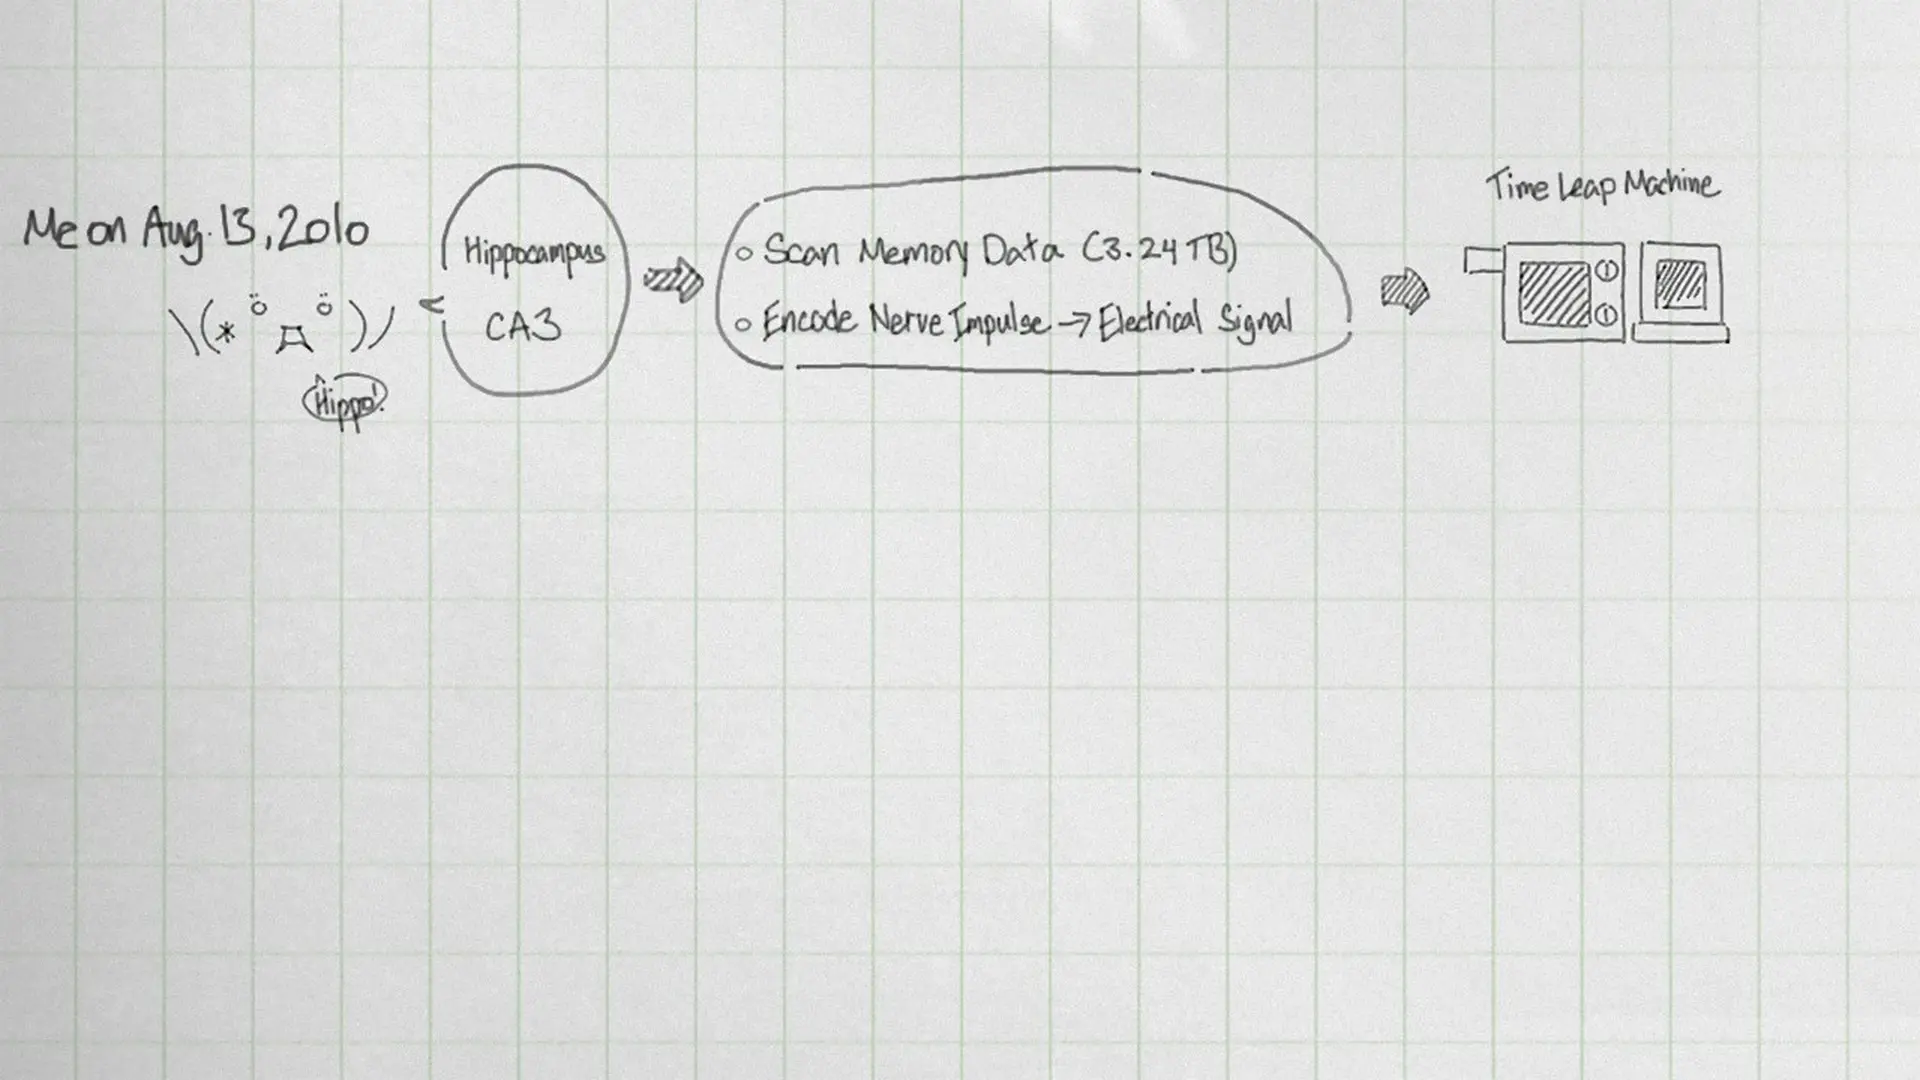 Me on Aug. 13, 2010
\(* ö д ö )ﾉ
Hippo!
Hippocampus
CA3
○ Scan Memory Data (3.24TB)
○ Encode Nerve Impulse → Electrical Signal
Time Leap Machine